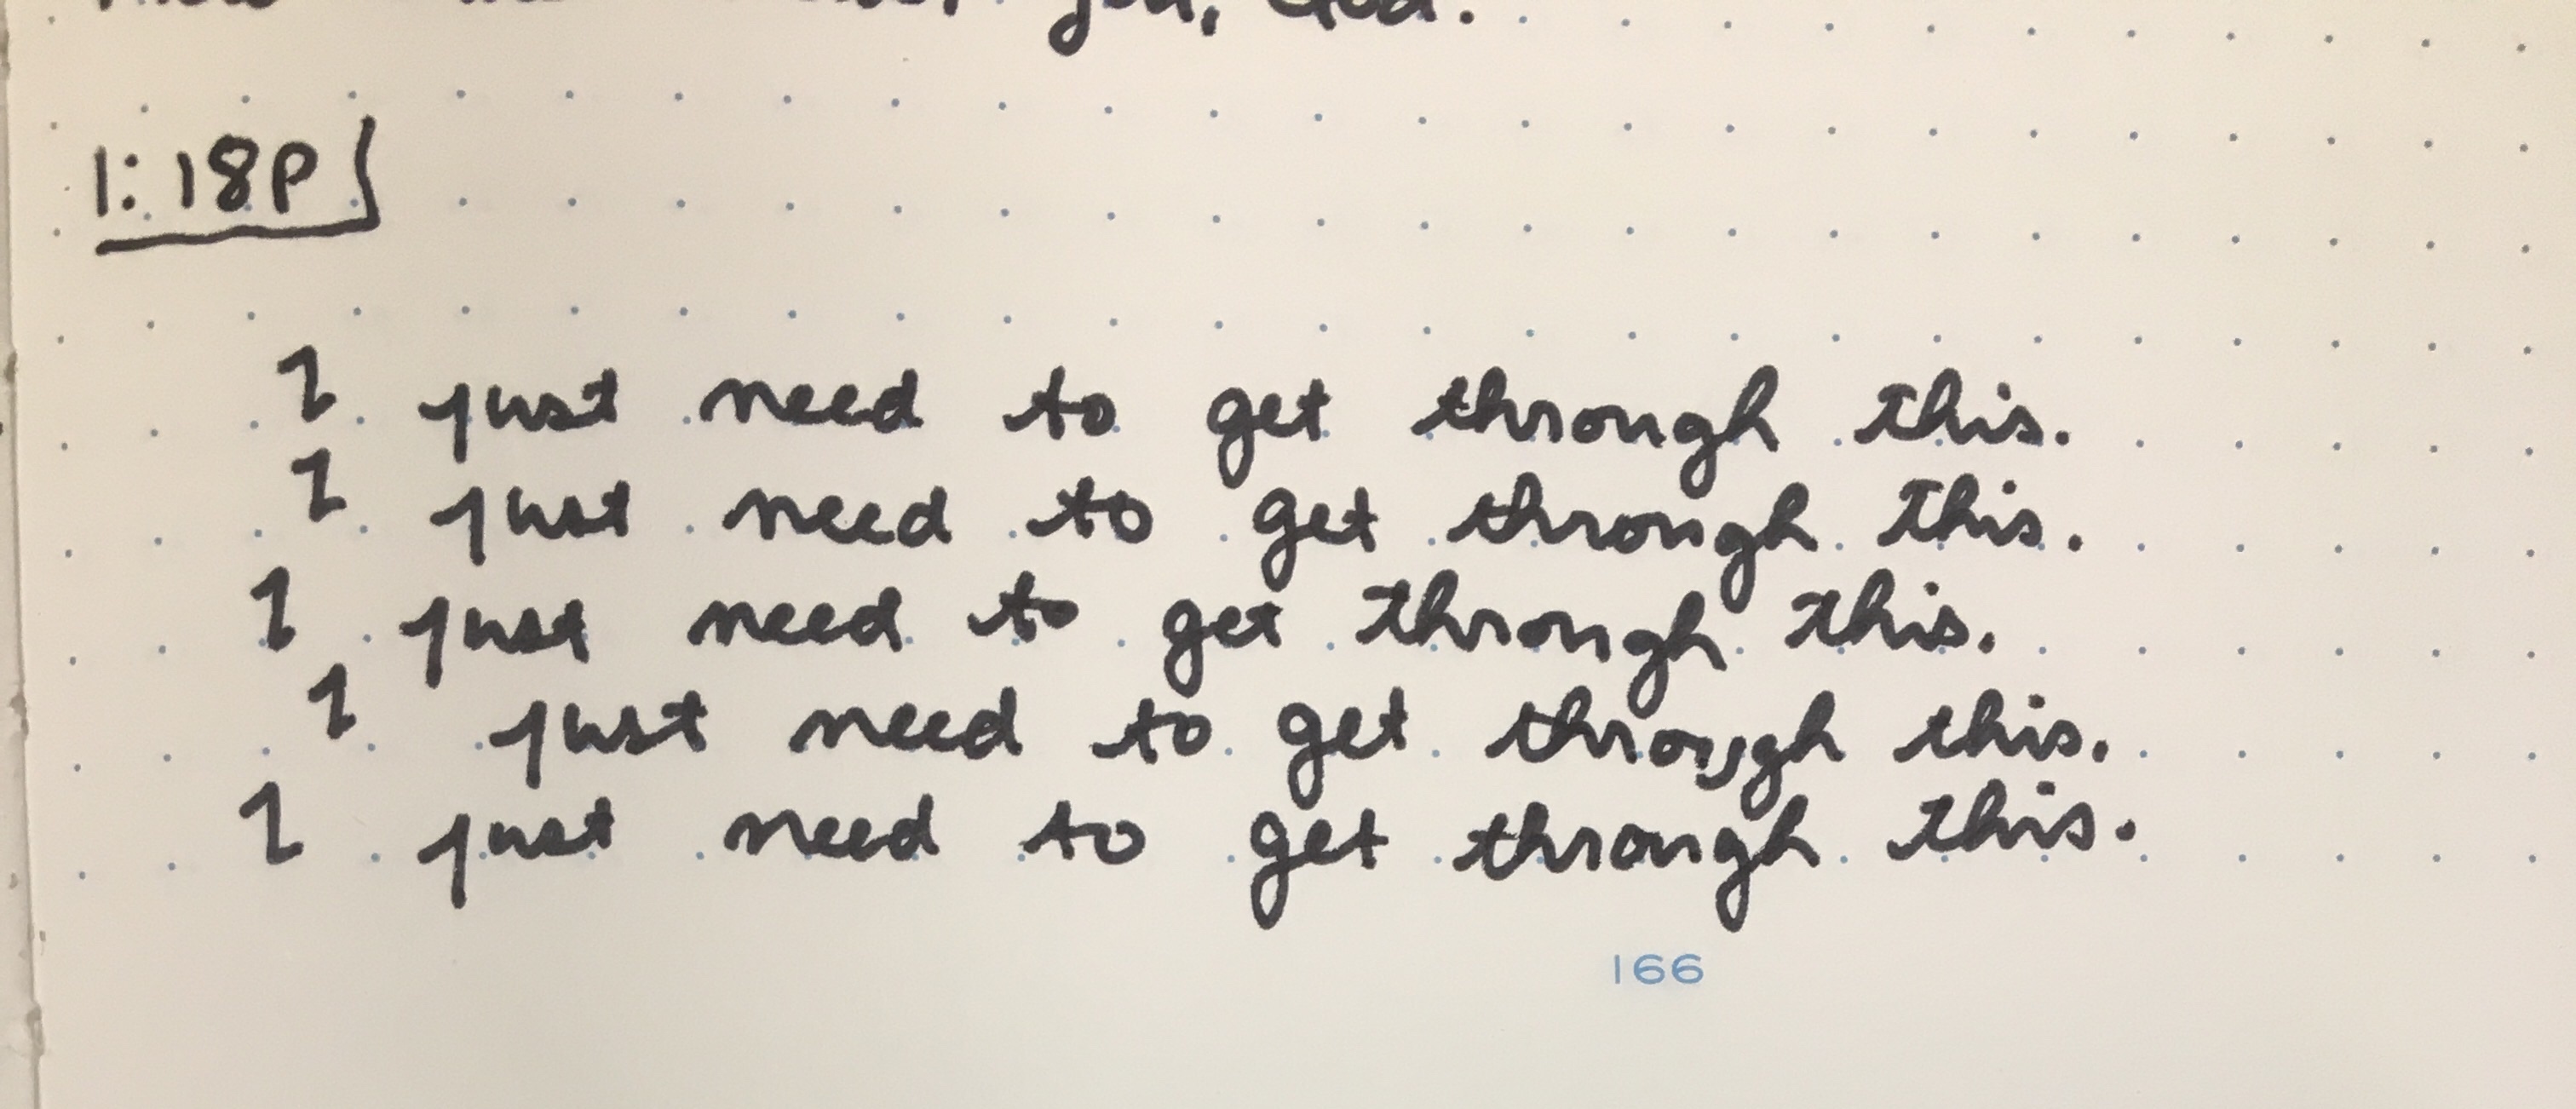 you, God.
1:18P
I just need to get through this.
I just need to get through this.
I just need to get through this.
I just need to get through this.
I just need to get through this.
166